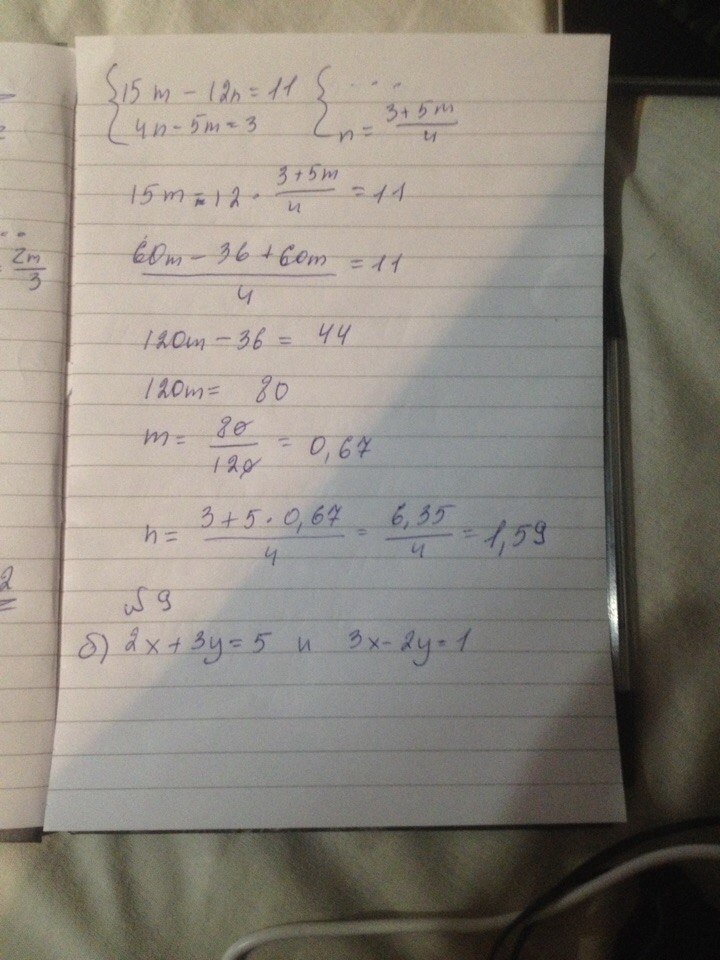 15m - 12n = 11
4n - 5m = 3
...
n = (3+5m)/4
15m - 12 · (3+5m)/4 = 11
(60m - 36 + 60m)/4 = 11
120m - 36 = 44
120m = 80
m = 80/120 = 0,67
n = (3+5·0,67)/4 = 6,35/4 = 1,59
№ 9
б) 2x + 3y = 5 и 3x - 2y = 1
..
2m/3
2